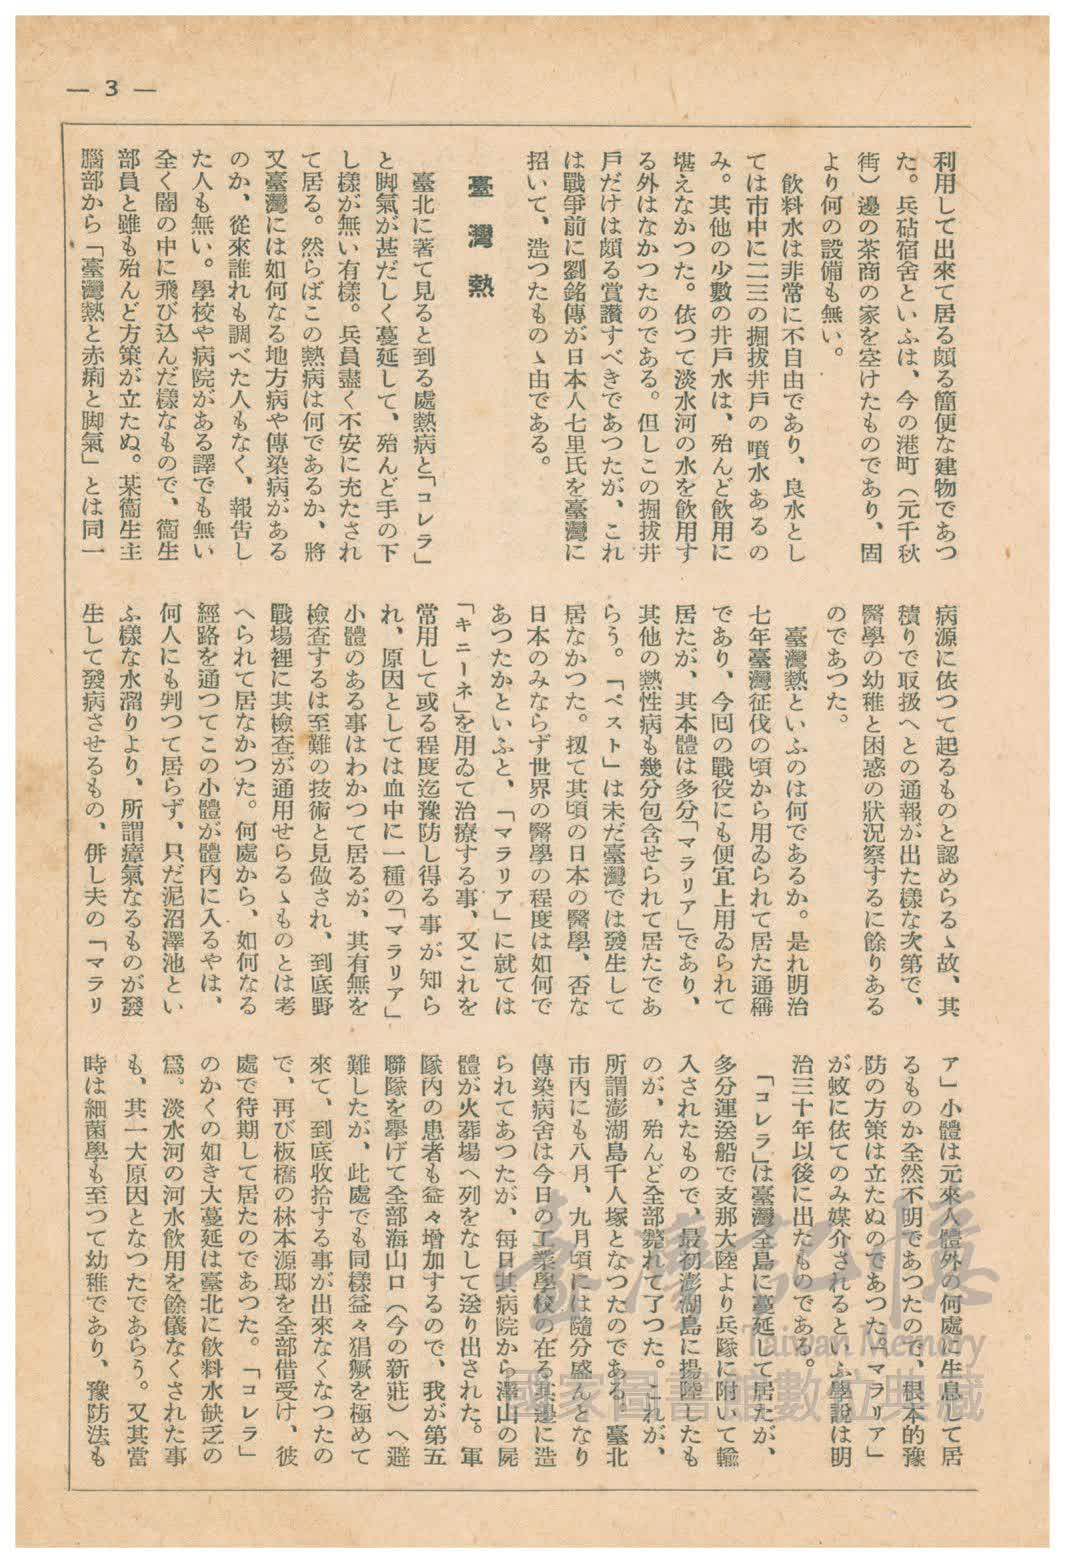 — 3 —
利用して出來て居る頗る簡便な建物であつ
た。兵站宿舍といふは、今の港町（元千秋
街）邊の茶商の家を空けたものであり、固
より何の設備も無い。
飲料水は非常に不自由であり、良水とし
ては市中に二三の掘拔井戸の噴水あるの
み。其他の少數の井戸水は、殆んど飲用に
堪えなかつた。依つて淡水河の水を飲用す
る外はなかつたのである。但しこの掘拔井
戸だけは頗る賞讚すべきであつたが、これ
は戰爭前に劉銘傳が日本人七里氏を臺灣に
招いて、造つたものゝ由である。
臺灣熱
臺北に著て見ると到る處熱病と「コレラ」
と脚氣が甚だしく蔓延して、殆んど手の下
し樣が無い有樣。兵員盡く不安に充たされ
て居る。然らばこの熱病は何であるか、將
又臺灣には如何なる地方病や傳染病がある
のか、從來誰れも調べた人もなく、報告し
た人も無い。學校や病院がある譯でも無い
全く闇の中に飛び込んだ樣なもので、衞生
部員と雖も殆んど方策が立たぬ。某衞生主
腦部から「臺灣熱と赤痢と脚氣」とは同一
病源に依つて起るものと認めらるゝ故、其
積りで取扱へとの通報が出た樣な次第で、
醫學の幼稚と困惑の狀況察するに餘りある
のであつた。
臺灣熱といふのは何であるか。是れ明治
七年臺灣征伐の頃から用ゐられて居た通稱
であり、今回の戰役にも便宜上用ゐられて
居たが、其本體は多分「マラリア」であり、
其他の熱性病も幾分包含せられて居たであ
らう。「ペスト」は未だ臺灣では發生して
居なかつた。扨て其頃の日本の醫學、否な
日本のみならず世界の醫學の程度は如何で
あつたかといふと、「マラリア」に就ては
「キニーネ」を用ゐて治療する事、又これを
常用して或る程度迄豫防し得る事が知ら
れ、原因としては血中に一種の「マラリア」
小體のある事はわかつて居るが、其有無を
檢査するは至難の技術と見做され、到底野
戰場裡に其檢査が通用せらるゝものとは考
へられて居なかつた。何處から、如何なる
經路を通つてこの小體が體內に入るやは、
何人にも判つて居らず、只だ泥沼澤池とい
ふ樣な水溜りより、所謂瘴氣なるものが發
生して發病させるもの、併し夫の「マラリ
ア」小體は元來人體外の何處に生息して居
るものか全然不明であつたので、根本的豫
防の方策は立たぬのであつた。「マラリア」
が蚊に依てのみ媒介されるといふ學說は明
治三十年以後に出たものである。
「コレラ」は臺灣全島に蔓延して居たが、
多分運送船で支那大陸より兵隊に附いて輸
入されたもので、最初澎湖島に揚陸したも
のが、殆んど全部斃れて了つた。これが、
所謂澎湖島千人塚となつたのである。臺北
市內にも八月、九月頃には隨分盛んとなり
傳染病舍は今日の工業學校の在る其邊に造
られてあつたが、每日其病院から澤山の屍
體が火葬場へ列をなして送り出された。軍
隊內の患者も益々增加するので、我が第五
聯隊を擧げて全部海山口（今の新莊）へ避
難したが、此處でも同樣益々猖獗を極めて
來て、到底收拾する事が出來なくなつたの
で、再び板橋の林本源邸を全部借受け、彼
處で待期して居たのであつた。「コレラ」
のかくの如き大蔓延は臺北に飲料水缺乏の
爲。淡水河の河水飲用を餘儀なくされた事
も、其一大原因となつたであらう。又其當
時は細菌學も至つて幼稚であり、豫防法も
臺灣記憶
Taiwan Memory
國家圖書館數位典藏